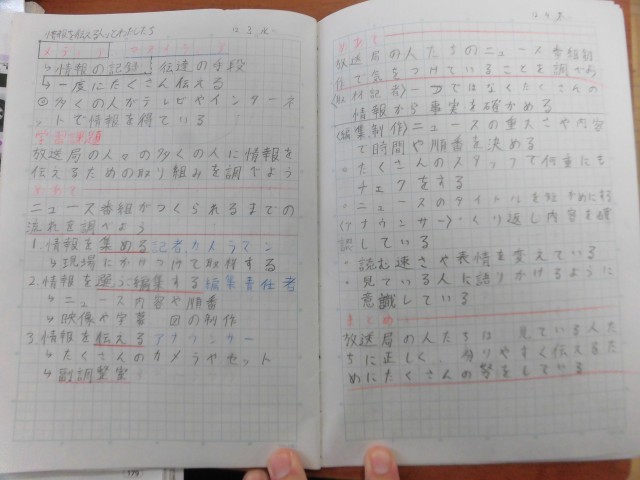 情報を伝える人々とわたしたち 12.3.水
↳情報の記録、伝達の手段
↳一度にたくさん伝える
◎多くの人がテレビやインターネ
ットで情報を得ている
学習課題
放送局の人々の多くの人に情報を
伝えるための取り組みを調べよう
めあて
ニュース番組がつくられるまでの
流れを調べよう
1.情報を集める 記者カメラマン
↳現場にかけつけて取材する
2.情報を選ぶ編集する 編集責任者
↳ニュース内容や順番
↳映像や字幕 図の制作
3.情報を伝える アナウンサー
↳たくさんのカメラやセット
↳副調整室
12.4.木
めあて
放送局の人たちのニュース番組制
作で気をつけていることを調べよう
(取材記者)一つではなくたくさんの
情報から事実を確かめる
(編集制作)ニュースの重大さや内容
で時間や順番を決める
・たくさんのスタッフで何重にも
チェクをする
・ニュースのタイトルを短めに
(アナウンサー)・くり返し内容を確
認している
・読む速さや表情を変えている
・見ている人に語りかけるように
意識している
まとめ
放送局の人たちは、見ている人た
ちに正しく、分りやすく伝えるた
めにたくさんの努をしている
179